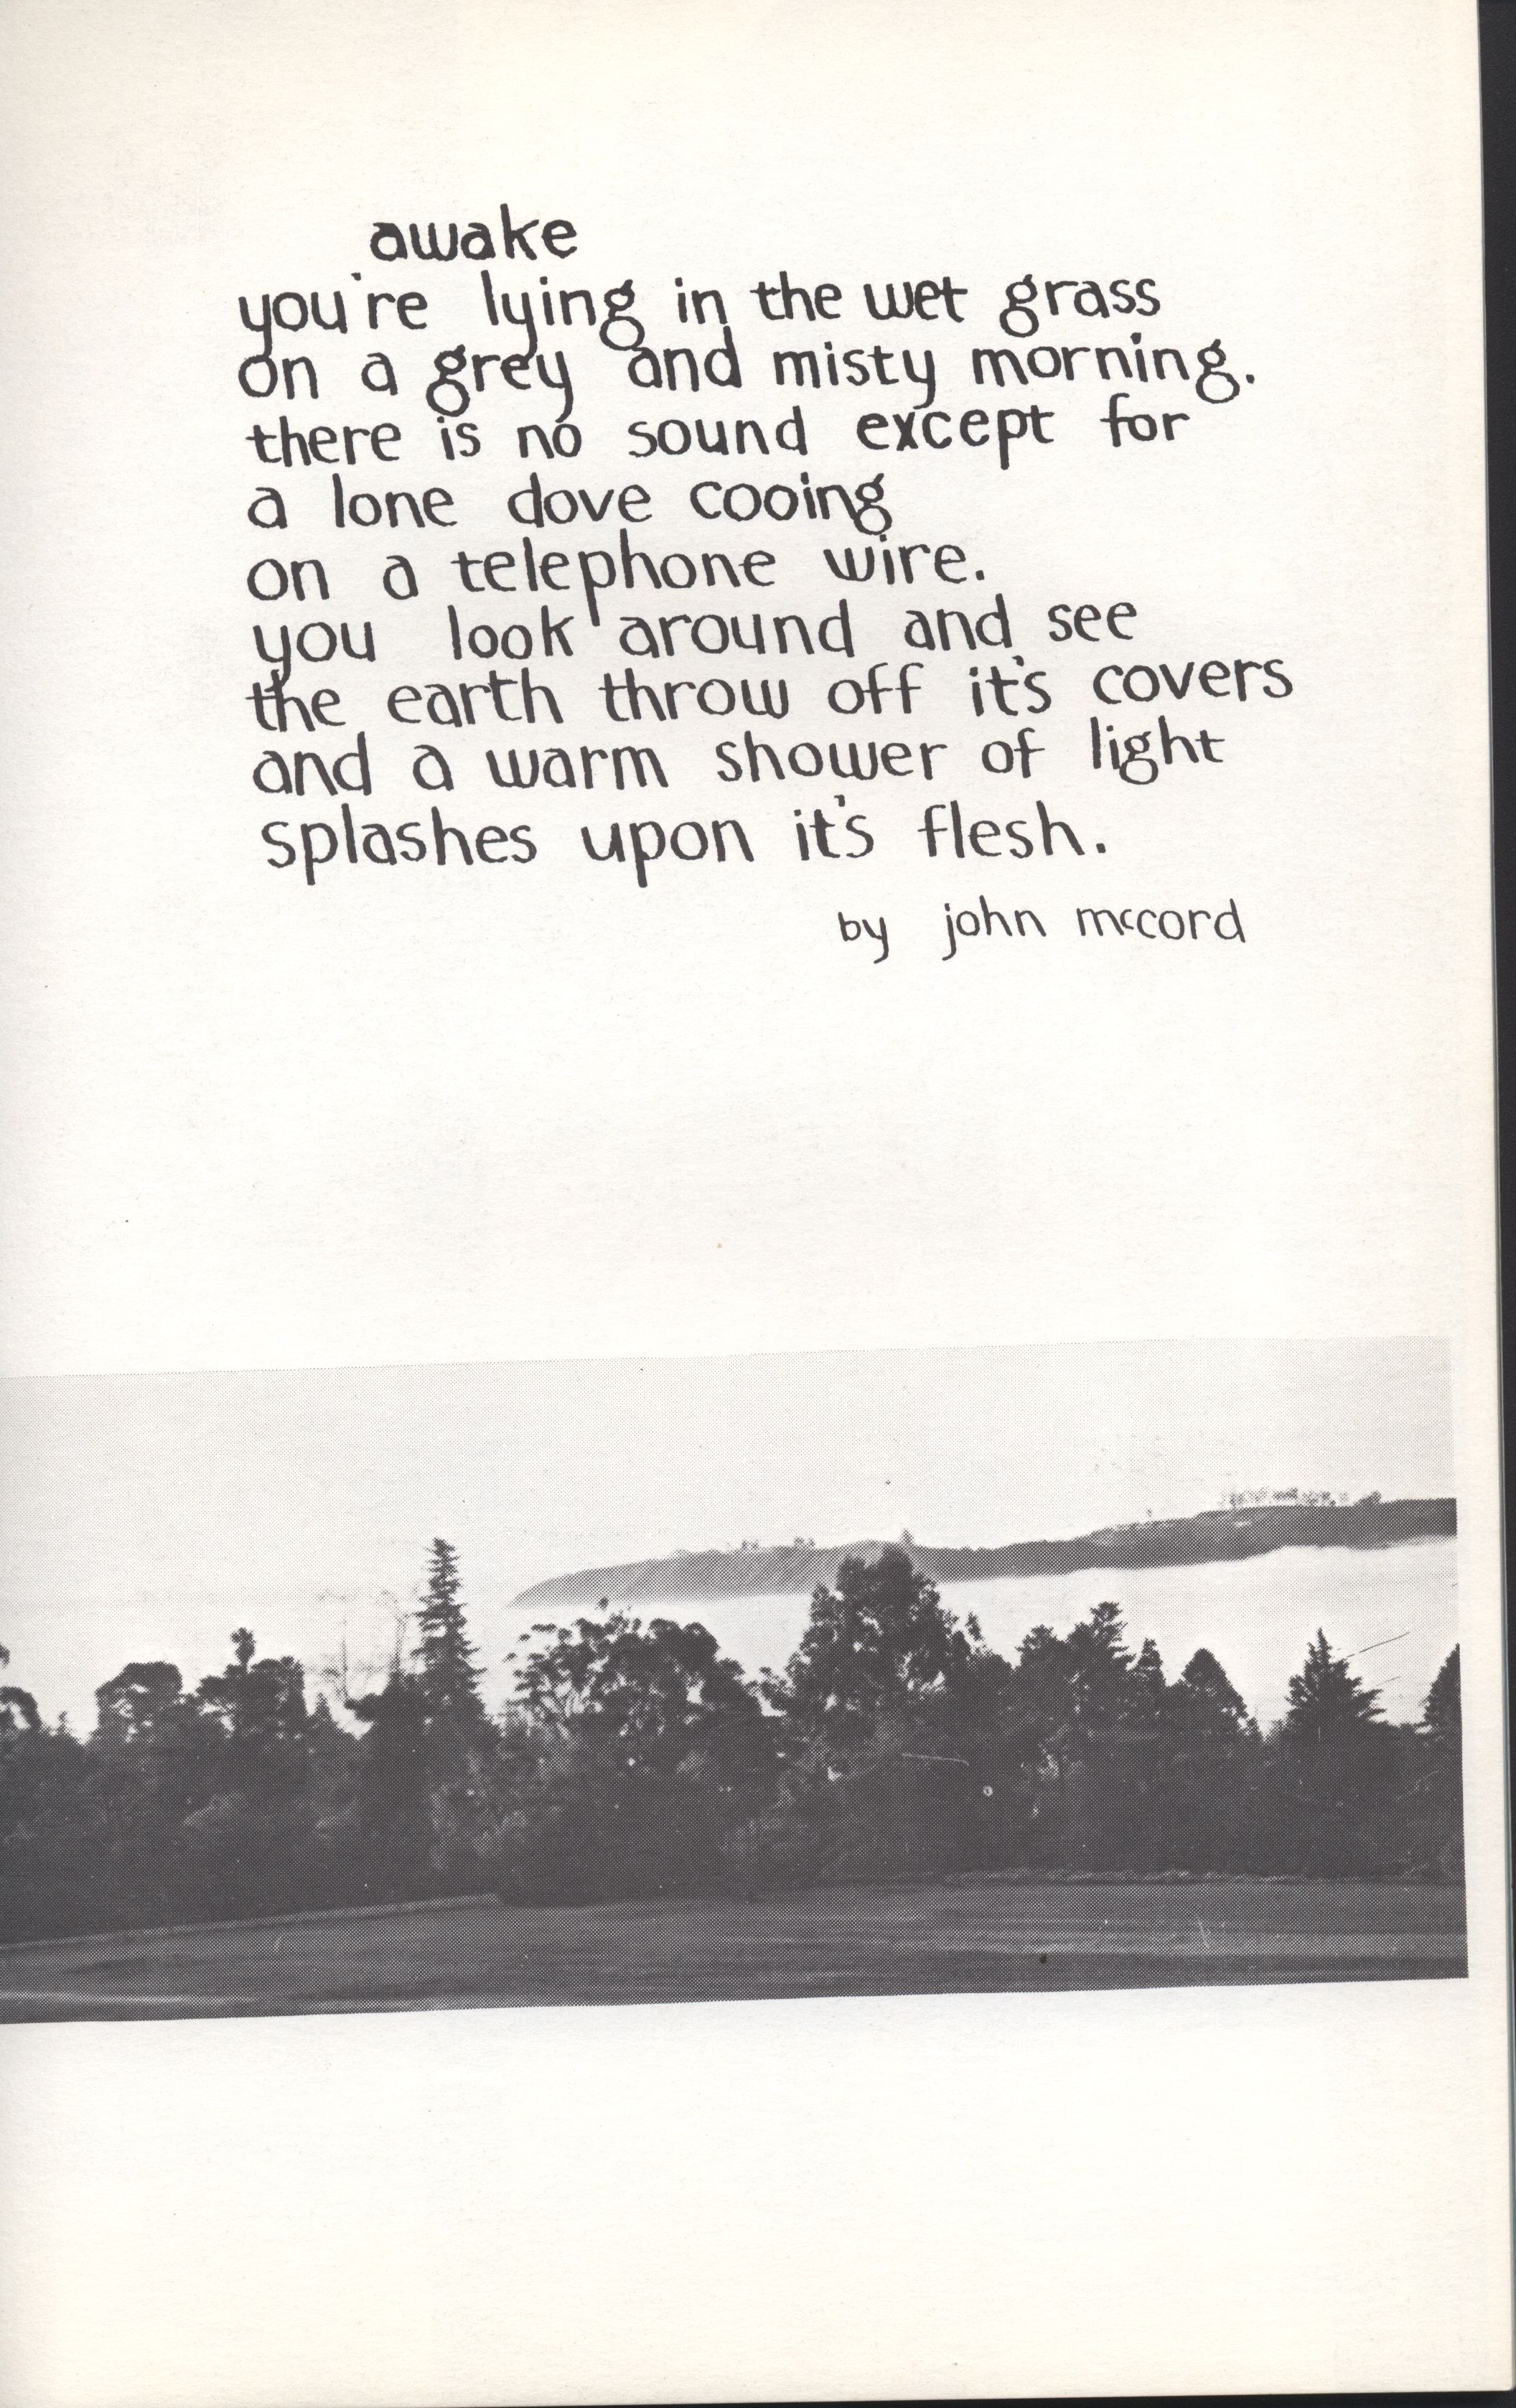 awake
you're lying in the wet grass
on a grey and misty morning.
there is no sound except for
a lone dove cooing
on a telephone wire.
you look around and see
the earth throw off it's covers
and a warm shower of light
splashes upon it's flesh.
by john mccord